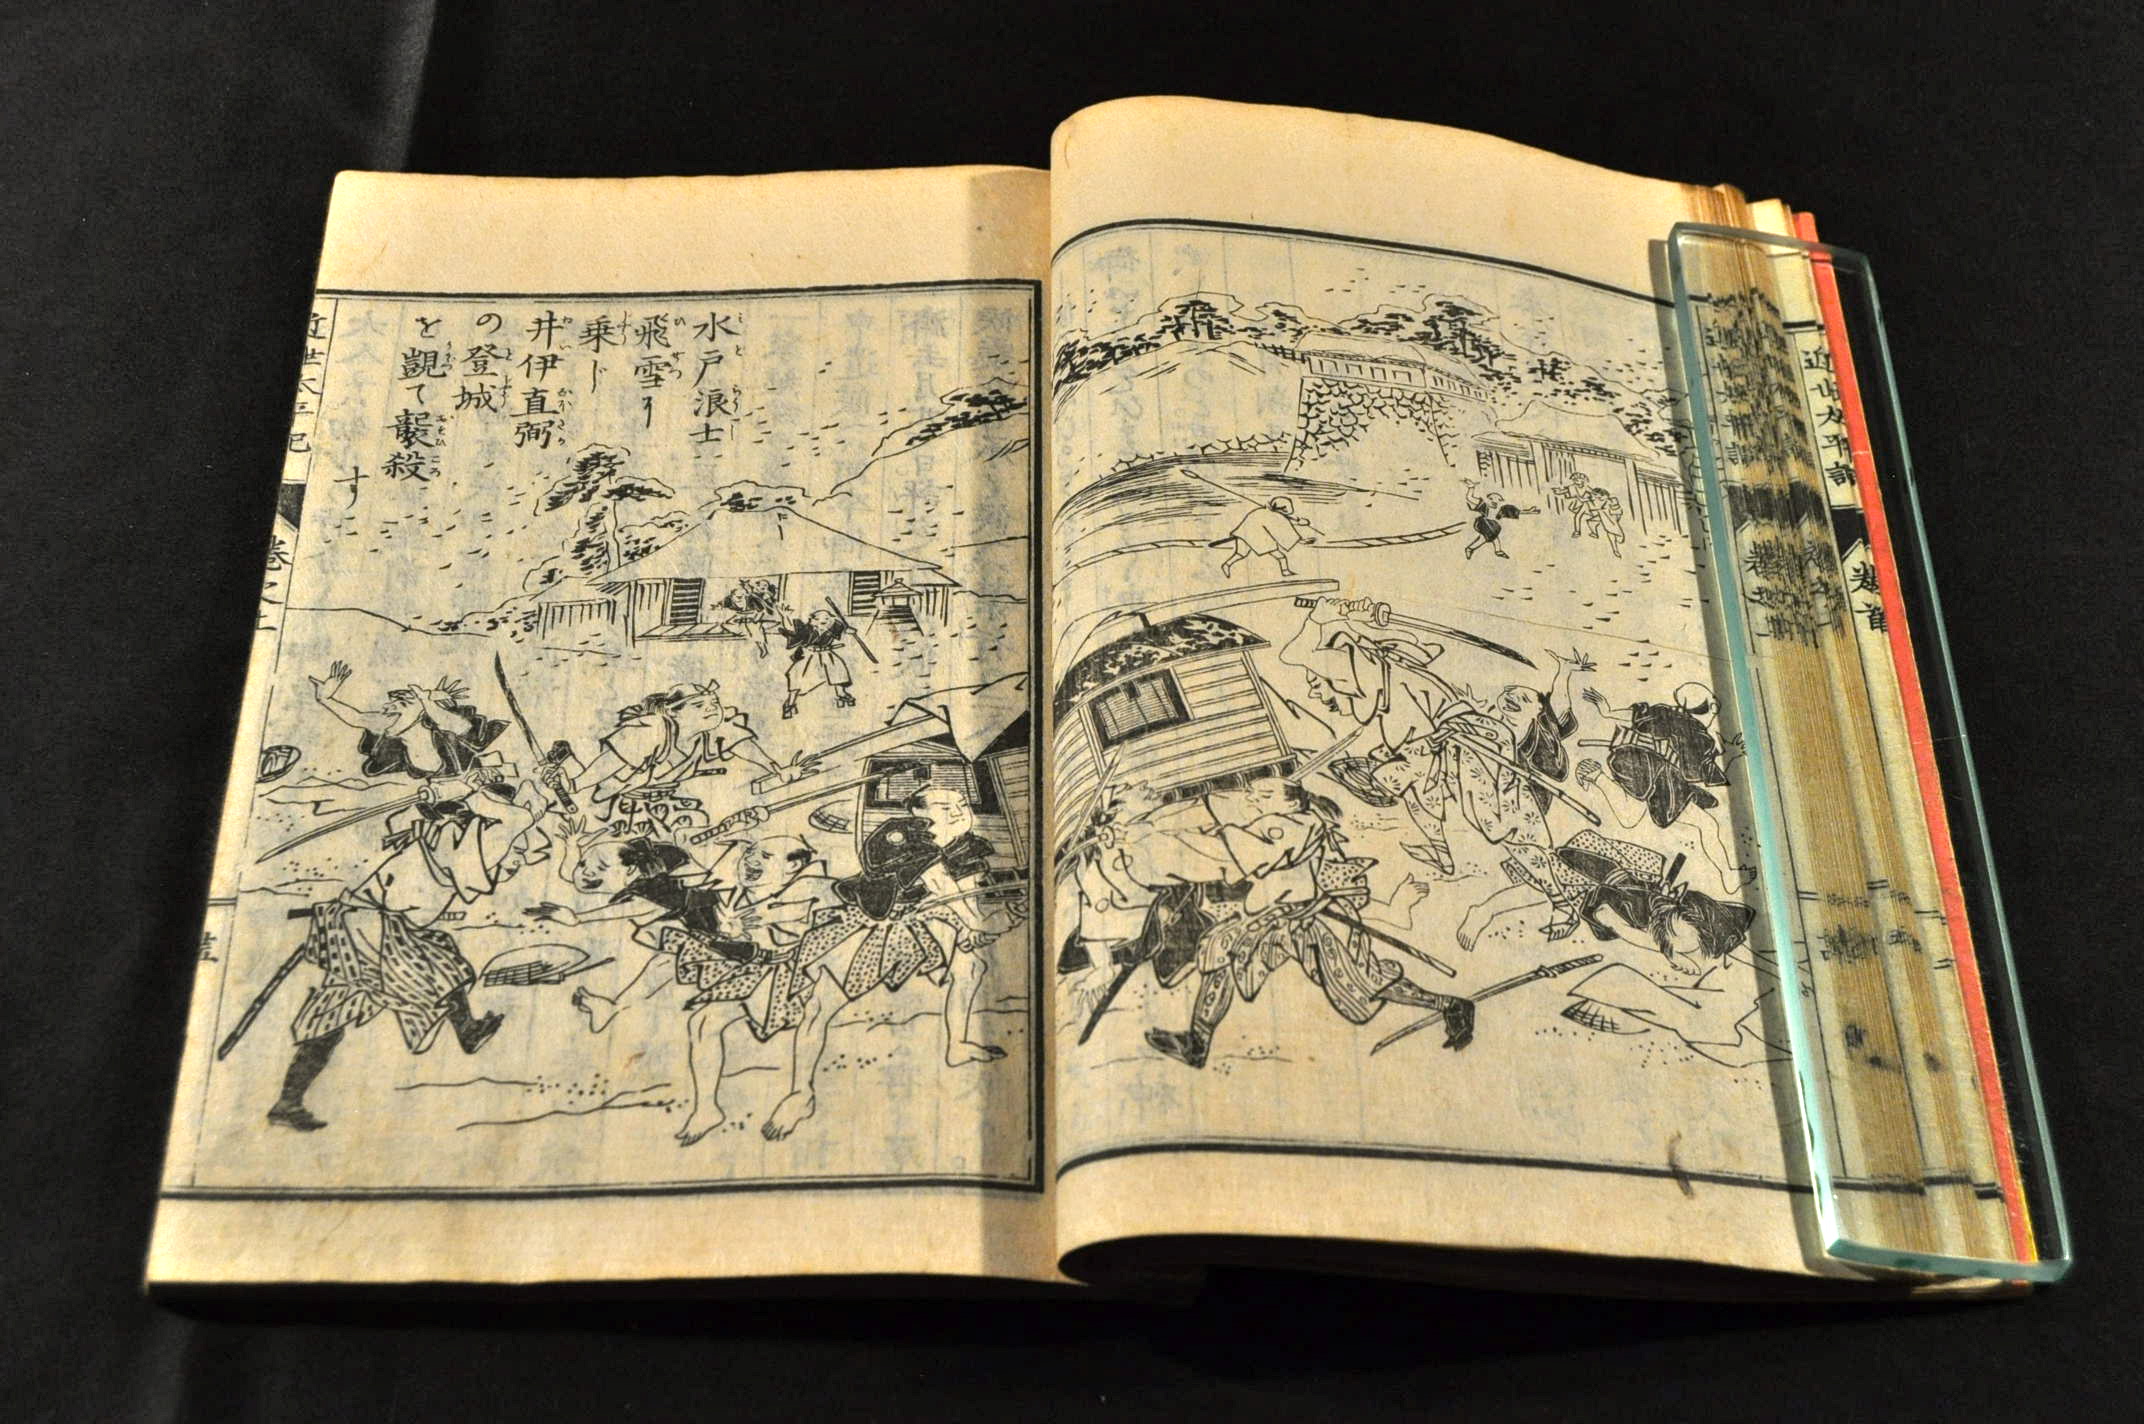 水戸浪士
飛雪に
乗じ
井伊直弼
の登城
を覬て襲殺
す
近世太平記
巻之二
近世太平記
巻首